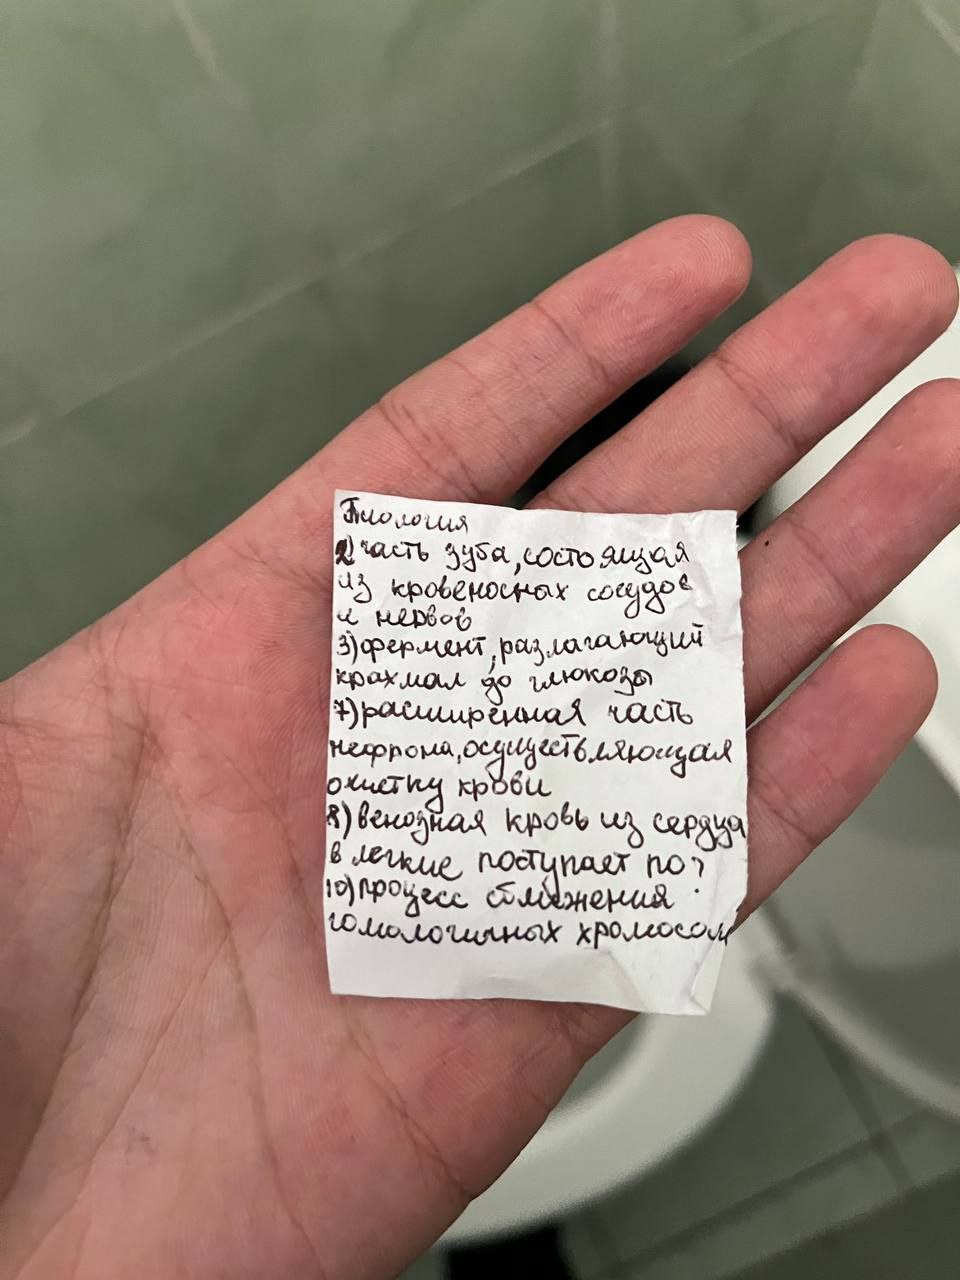 Биология
2) часть зуба, состоящая
из кровеносных сосудов
и нервов
3) фермент, разлагающий
крахмал до глюкозы
7) расширенная часть
нефрона, осуществляющая
очистку крови
8) венозная кровь из сердца
в легкие поступает по?
10) процесс сближения
гомологичных хромосом